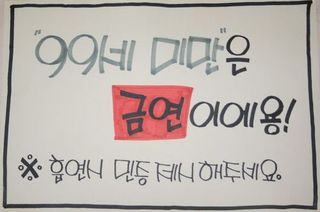 "99세 미만"은
금연이에용!
※ 흡연시 민증 제시 해주세요.